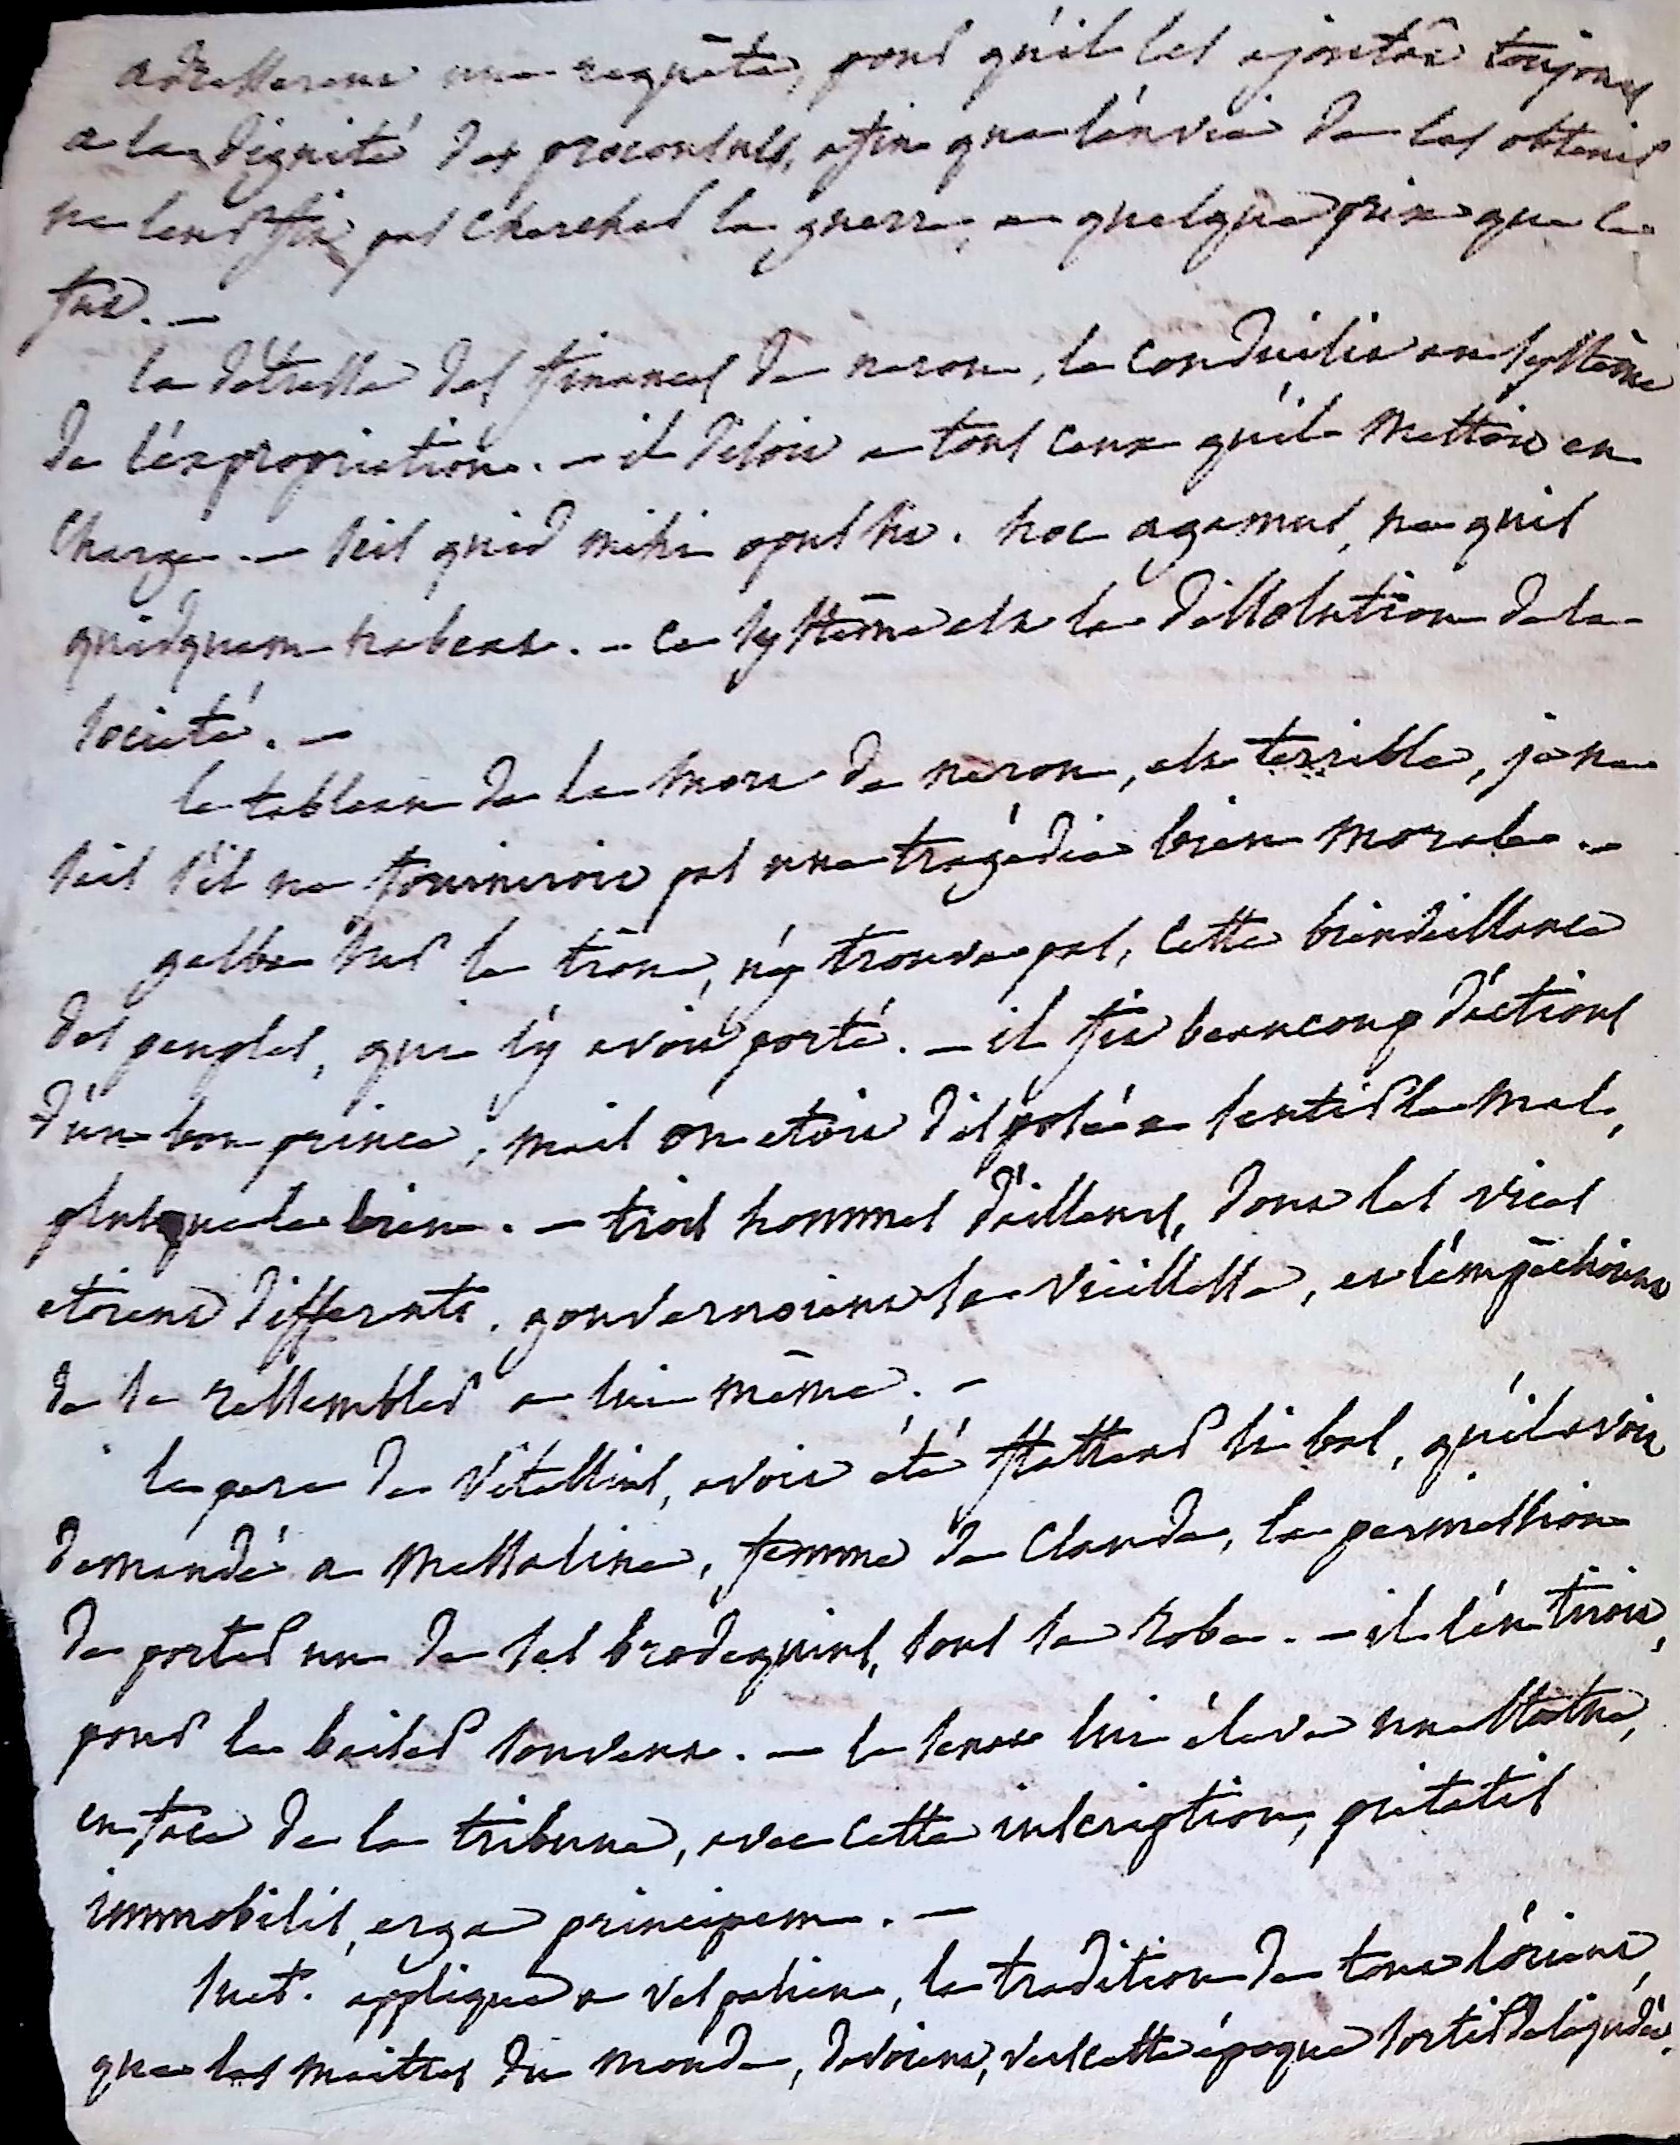 adresserent une requête, pour qu'il les ajoutât toujours
a la dignité des proconsuls, afin que l'envie de les obtenir
ne leur fit pas chercher la guerre, a quelque prix que ce
fut. —
la détresse des finances de neron, le conduisit au système
de l'expropriation. — il disoit a tous ceux qu'il mettoit en
charge. — scis quid mihi opus sit. hoc agamus, ne quis
quidquam habeat. — ce système est la dissolution de la
société. —
le tableau de la mort de neron, est terrible, je ne
sais s'il ne fourniroit pas une tragédie bien morale. —
galba sur le trône, n'y trouva pas, cette bienveillance
des peuples, qui l'y avoit porté. — il fit beaucoup d'actions
d'un bon prince, mais on etoit disposé a sentir le mal,
plus que le bien. — trois hommes d'ailleurs, dont les vices
etoient differents, gouvernoient sa vieillesse, et l'empêchoient
de se ressembler a lui même. —
le pere de Vitellius, avoit été flatteur si bas, qu'il avoit
demandé a Messaline, femme de Claude, la permission
de porter un de ses brodequins, sous sa robe. — il l'en tiroit,
pour le baiser souvent. — le senat lui éleva une statue,
en face de la tribune, avec cette inscription, pietatis
immobilis, erga principem. —
suet. applique a vespasien, la tradition de tout l'orient,
que les maitres du monde, devoient, vers cette époque sortir de la judée.